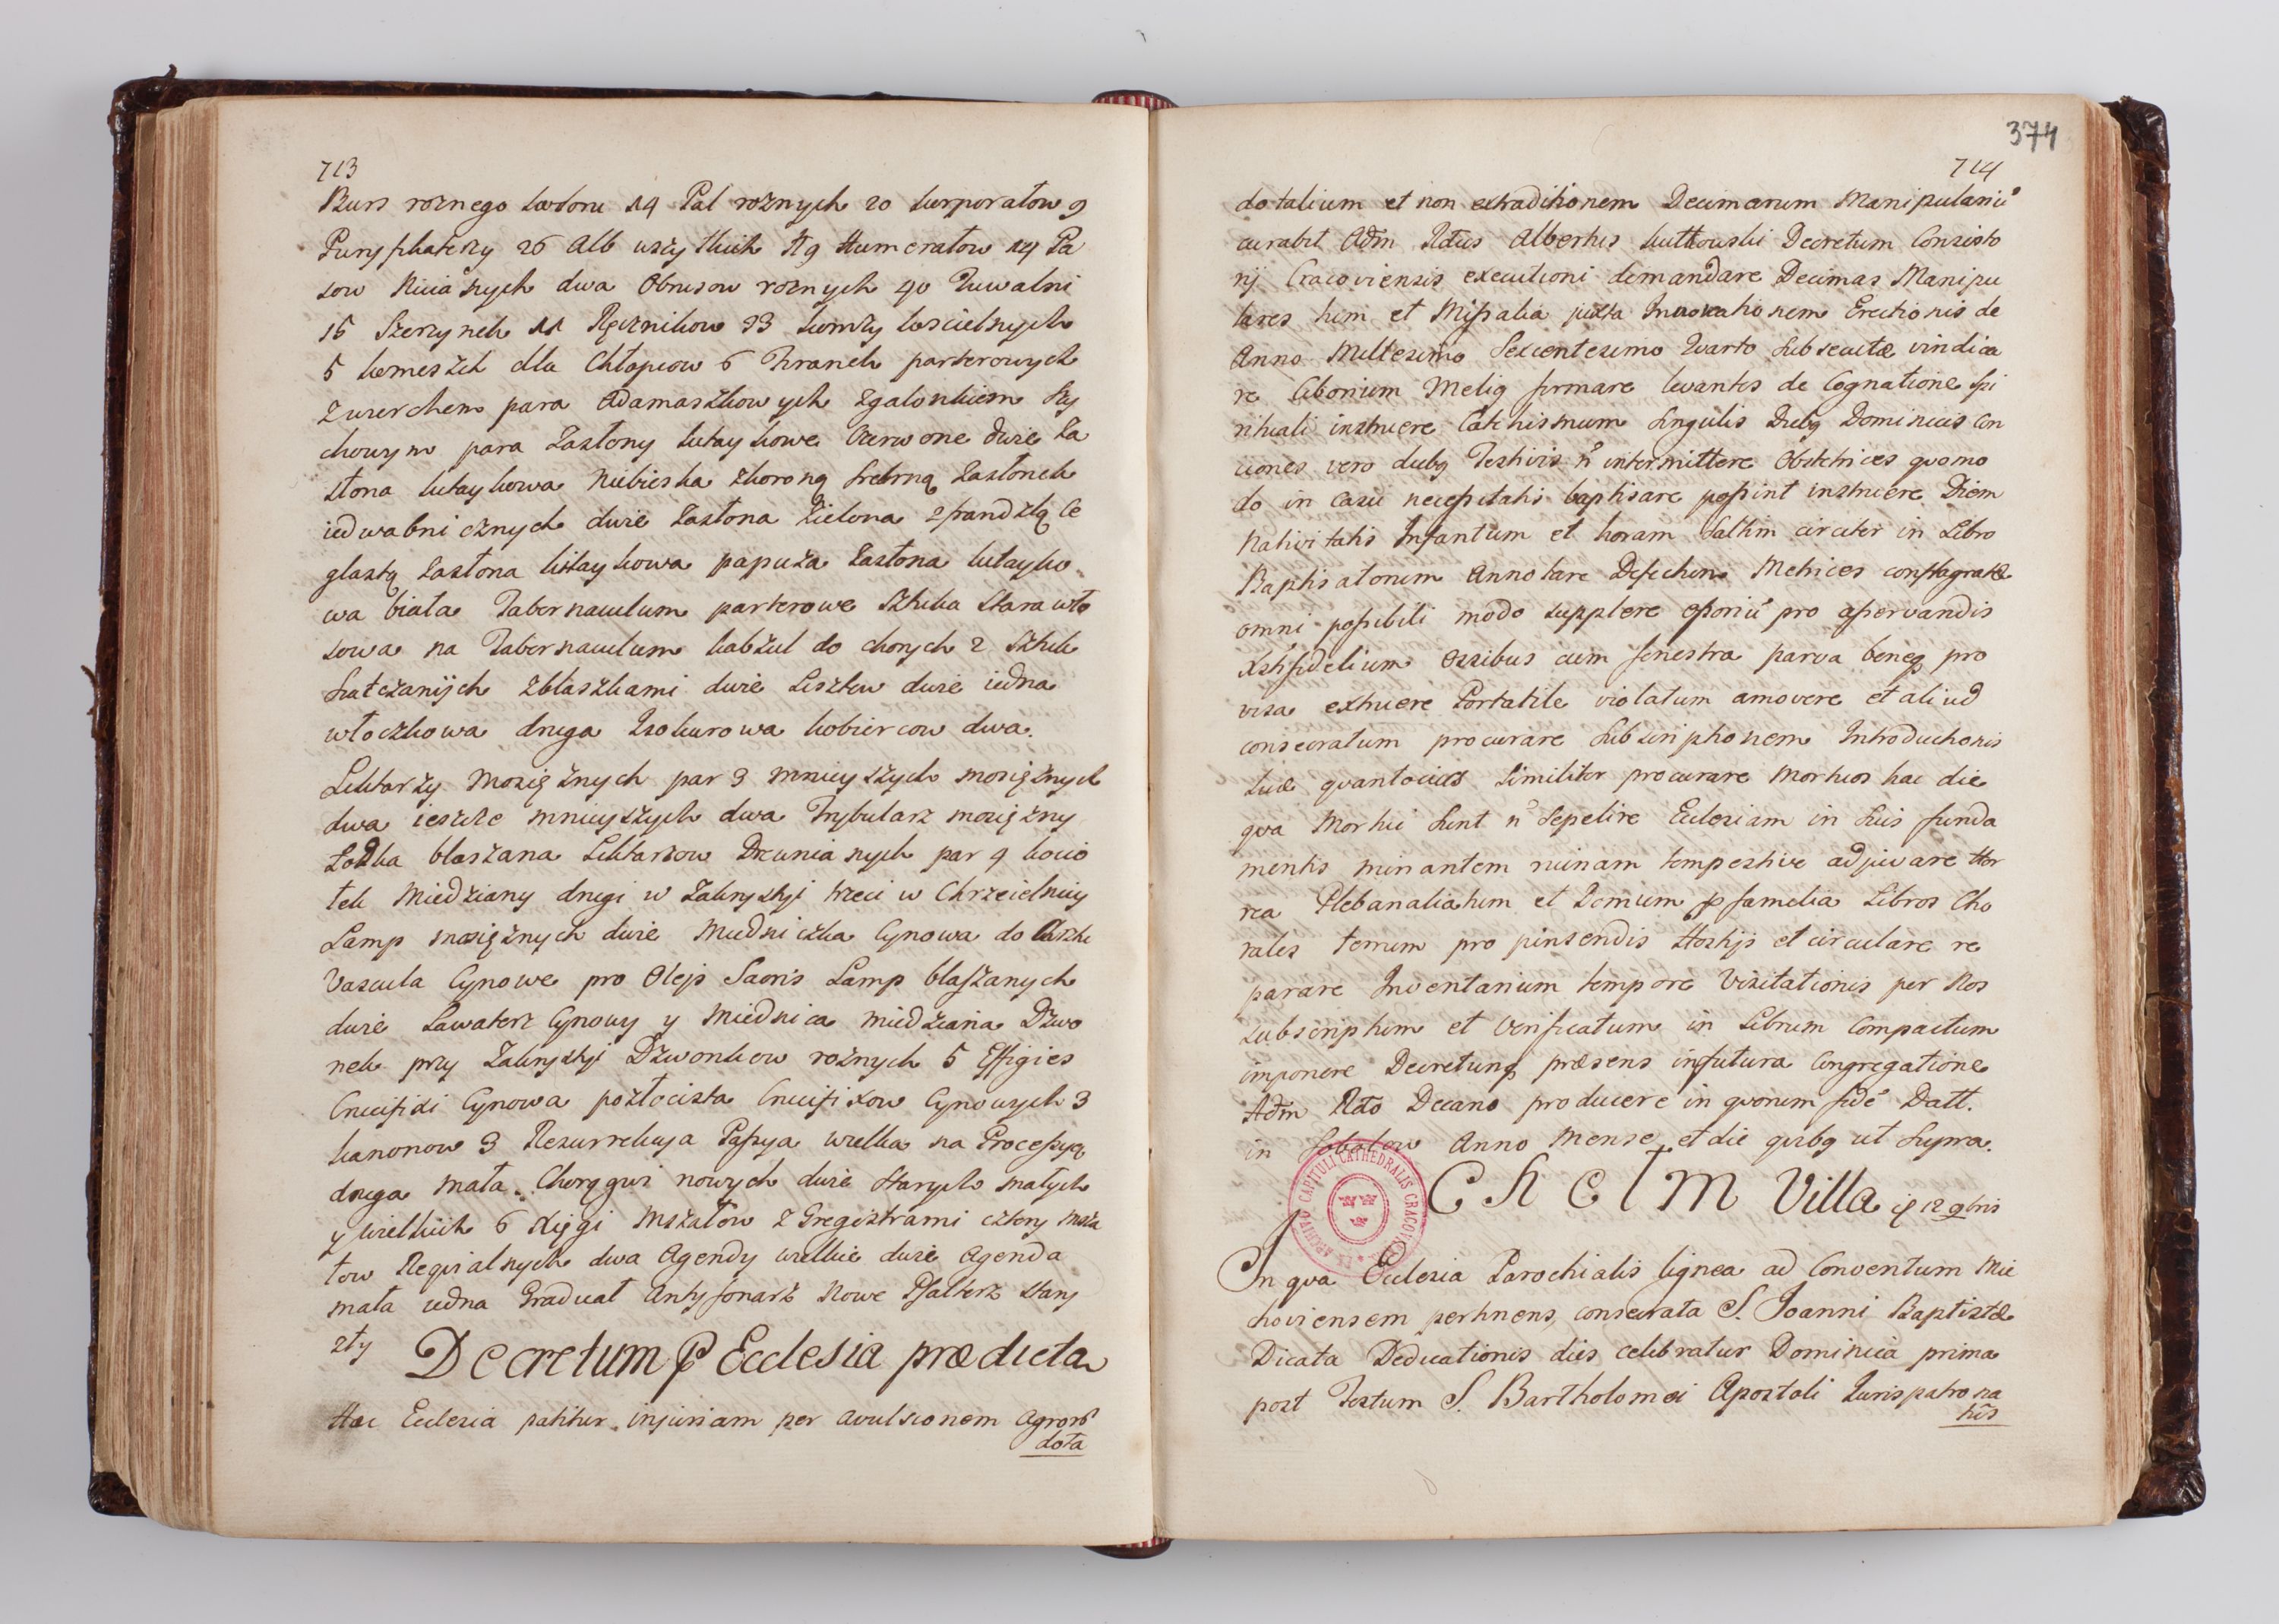 713
Burs roznego koloru 14 Pal roznych 20 korporałow 9
Puryfikaterzy 26 Alb wszytkich 19 Humerałow 14 Pa
sow Nicianych dwa Obrusow roznych 40 Tuwalni
15 Szerzynek 11 Ręcznikow 33 komży koscielnych
5 komeszek dla Chłopcow 6 Firanek parterowych
zwierchem para Adamaszkowych zgalonkiem Szy
chowym para Zasłony kitaykowe Czerwone dwie Za
słona kitaykowa Niebieska zkoroną srebrną Zasłonek
iedwabnicznych dwie Zasłona Zielona zfrandzlą Ce
glastą Zasłona kitaykowa papuza Zasłona kitayko
wa biała Tabernaculum parterowe Sztuka Stara wło
sowa na Tabernaculum kabzul do chorych 2 Sztuk
zblaszkami dwie Lisztew dwie iedna
włoczkowa druga Isokurowa kobiercow dwa.
Lichtarzy Mosiężnych par 3 mnieyszych mosiężnych
dwa ieszcze mnieyszych dwa Trybularz mosiężny
Łodka blaszana Lichtarzow Drewnianych par 4 kocio
łek Miedziany drugi w Zakrystyi trzeci w Chrzcielnicy
Lamp mosiężnych dwie Miedniczka Cynowa do Chrztu
Vascula Cynowe pro Olejs Sacris Lamp blaszanych
dwie Lawaterz Cynowy y Miednica miedziana Dzwo
nek przy Zakrystyi Dzwonkow roznych 5 Effigies
Crucifixi Cynowa pozłocista Crucifixow Cynowych 3
kanonow 3 Resurrekcya Passya wielka na Processyą
druga Mała. Chorągwi nowych dwie Starych małych
y wielkich 6 Xięgi Mszałow z Gregistrami cztery Msza
łow Requialnych dwa Agendy wielkie dwie Agenda
mała iedna Graduał Antyfonarz Nowe Psałterz Stary
zły
Decretum p Ecclesia prædicta
Hæc Ecclesia patitur injuriam per avulsionem Agrorũ
dota
374
714
dotalium et non extraditionem Decimarum Manipulariũ
curabit Adm Rdus Albertus kutkowski Decretum Consisto
rij Cracoviensis executioni demandare Decimas Manipu
lares tum et Missalia juxta Innovationem Erectionis de
Anno Millesimo Sexcentesimo Quarto Subsecutæ vindica
re Ciborium Meliq firmare levantes de Cognatione Spi
rituali instruere Catechismum Singulis Diebq Dominicis Con
ciones vero diebq Festivis n intermittere Obstetrices quomo
do in casu necessitatis baptisare possint instruere Diem
Nativitatis Infantum et horam Saltim circiter in Libro
Baptisatorum Annotare Defectum Metrices conflagratæ
omni possibili modo supplere ossoriũ pro asservandis
Xstifidelium Ossibus cum fenestra parva beneq pro
visa extruere Portatile violatum amovere et aliud
consecratum procurare Subscriptionem Introductionis
Suæ quantocius Similiter procurare Mortuos hac die
qva Mortui Sunt n Sepelire Ecclesiam in Suis funda
mentis minantem ruinam tempestive adjuvare Hor
rea Plebanalia tum et Domum p familia Libros Cho
rales ferrum pro pinsendis Hostijs et circulare re
parare Inventarium tempore Visitationis per Nos
subscriptum et Verificatum in Librum Compactum
imponere Decretumq præsens infutura Congregatione
Adm Rdo Decano producere in qvorum fidẽ Datt.
in Anno Mense et die qvibq ut Supra.
Chełm Villa 12 9bris
In qva Ecclesia Parochialis lignea ad Conventum Mie
choviensem pertinens, consecrata S. Joanni Baptistæ
Dicata Dedicationis dies celebratur Dominica prima
post Festum S. Bartholomei Apostoli Jurispatrona
tũs
EX ARCHIVO CAPITULI CATHEDRALIS CRACOV